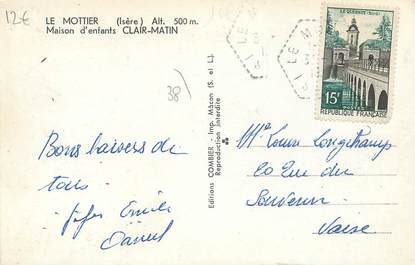 12€
LE MOTTIER (Isère) Alt. 500 m.
Maison d'enfants CLAIR-MATIN
38
Bons baisers de
tous
Daniel
Editions COMBIER - Imp. Mâcon (S. et L.)
Reproduction interdite
LE M
LE QUESNOY (Nord)
15F
REPUBLIQUE FRANÇAISE
Longchamp
20 Rue du
Souvenir
Vaise